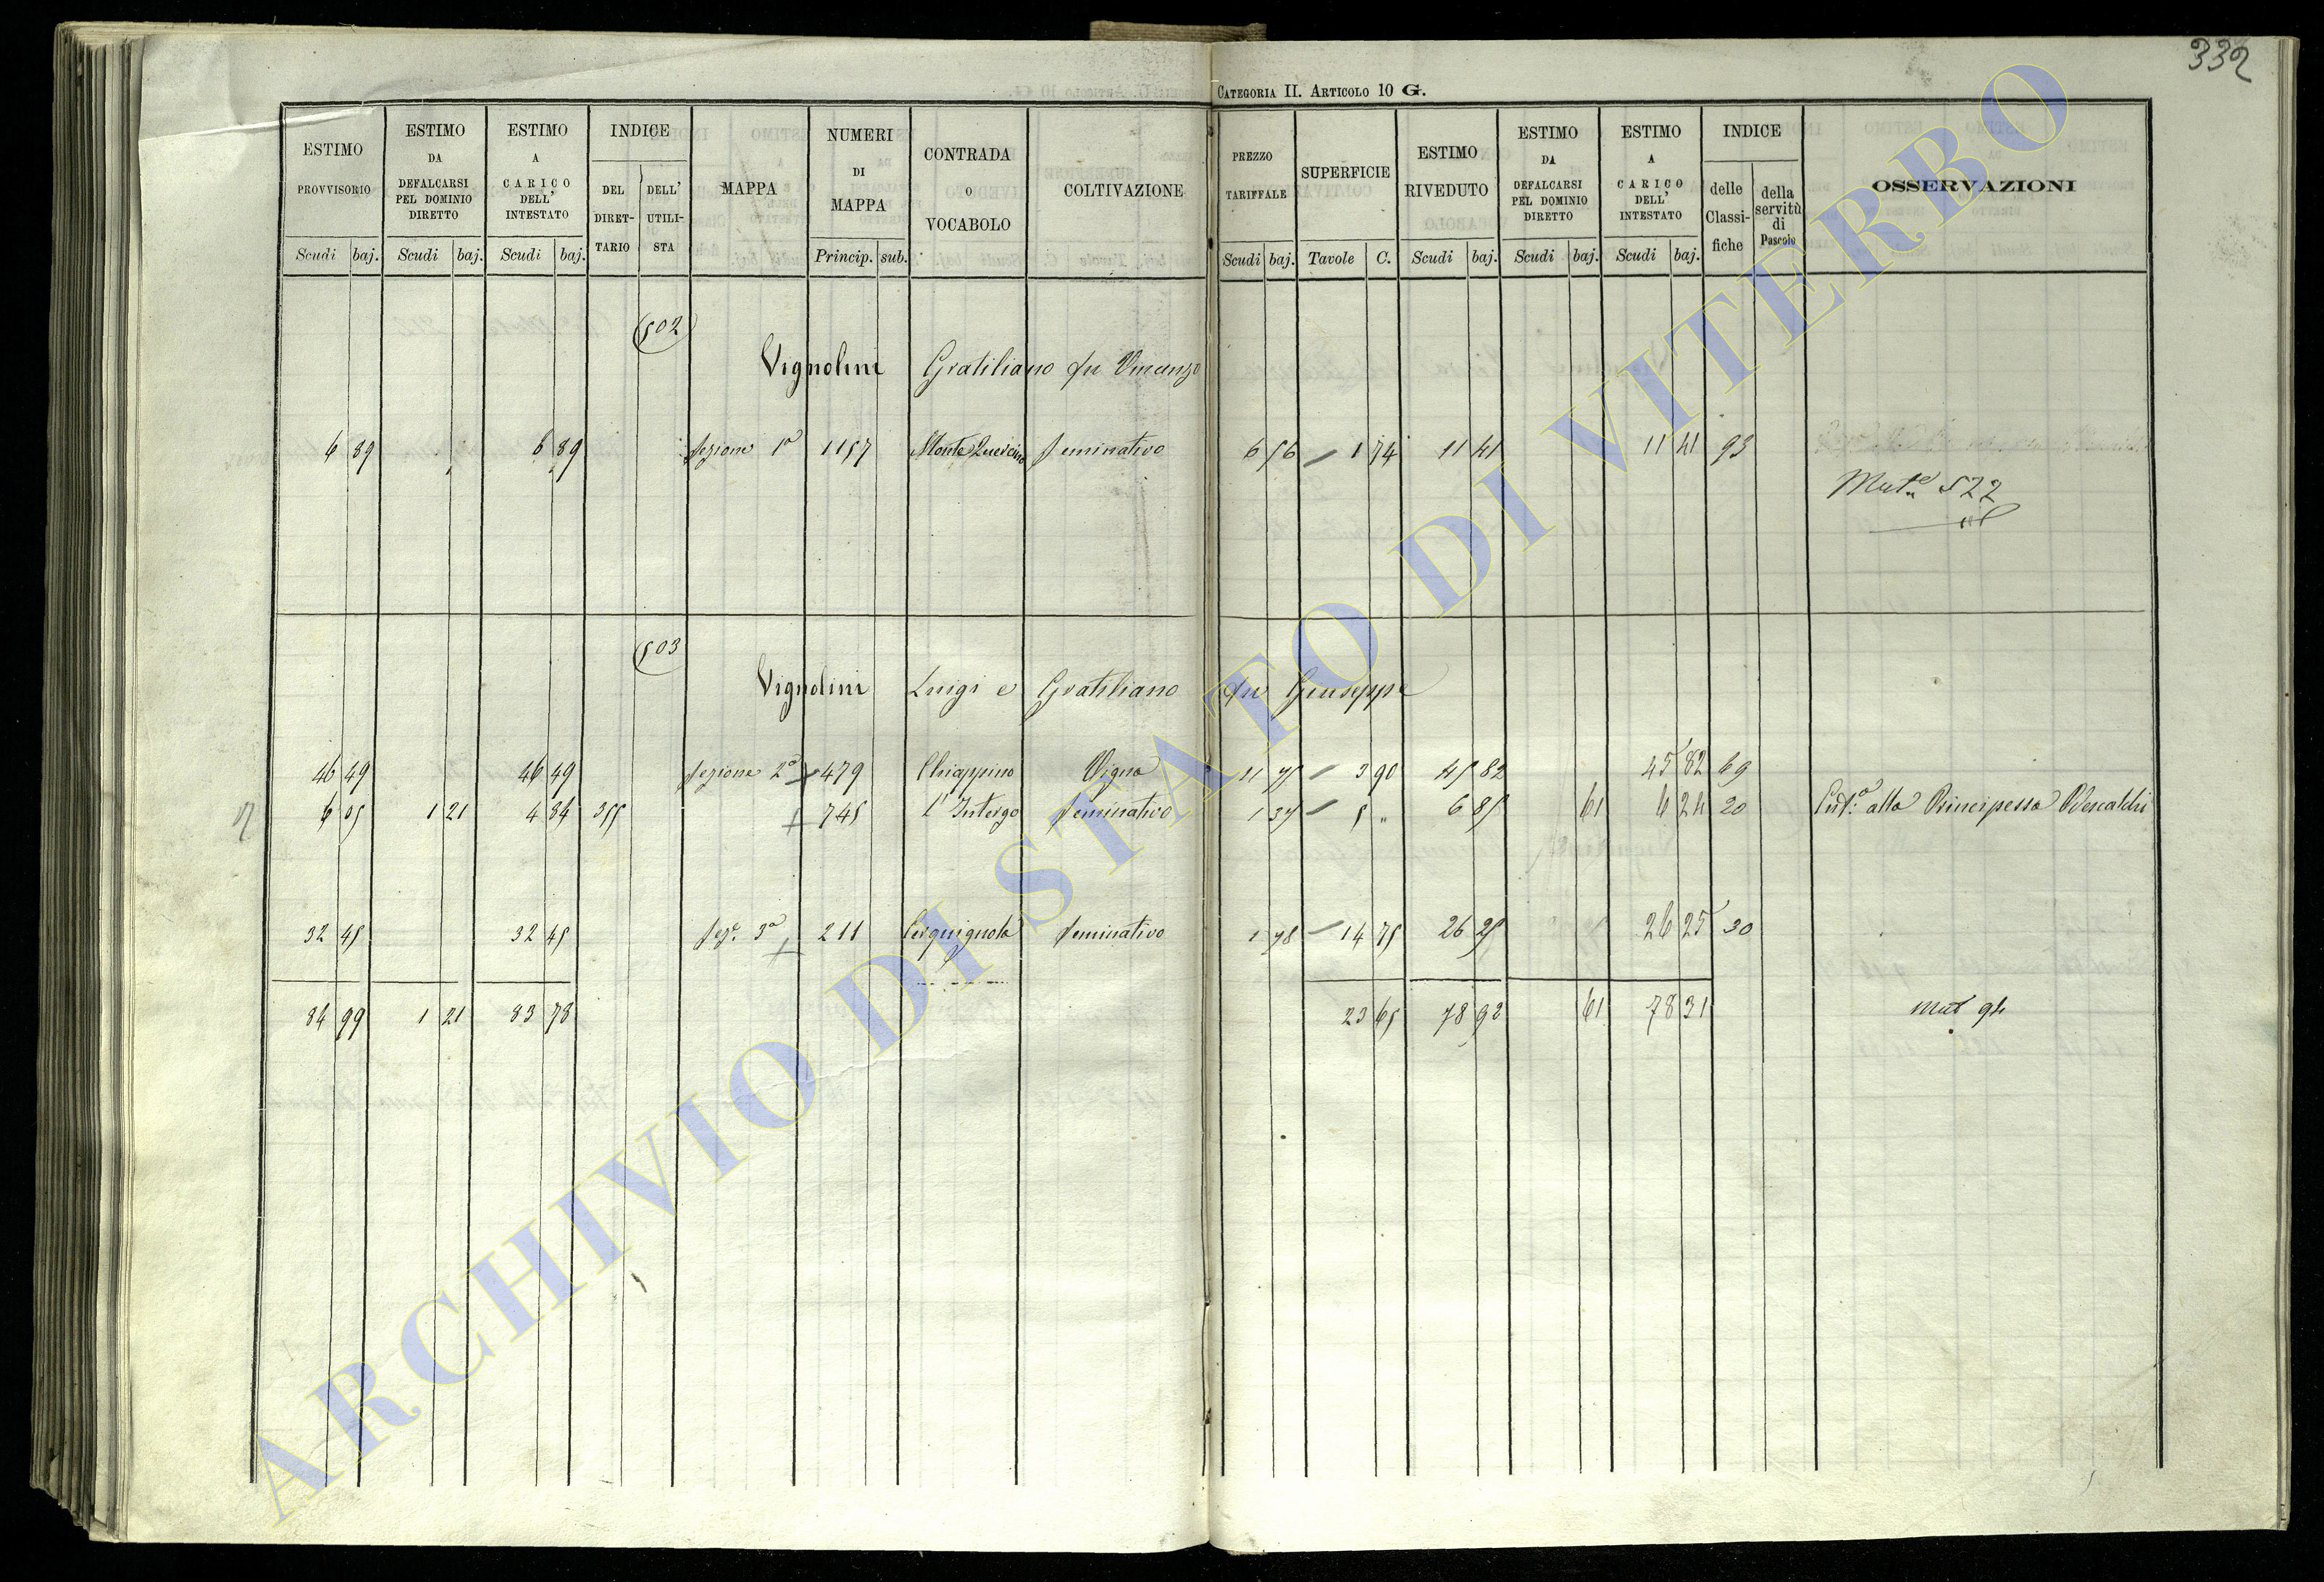 332
CATEGORIA II. ARTICOLO 10 G.
ESTIMO PROVVISORIO Scudi baj.
ESTIMO DA DEFALCARSI PEL DOMINIO DIRETTO Scudi baj.
ESTIMO A CARICO DELL' INTESTATO Scudi baj.
INDICE DEL DIRET-TARIO DELL' UTILI-STA
MAPPA
NUMERI DI MAPPA Princip. sub.
CONTRADA O VOCABOLO
COLTIVAZIONE
PREZZO TARIFFALE Scudi baj.
SUPERFICIE Tavole C.
ESTIMO RIVEDUTO Scudi baj.
ESTIMO DA DEFALCARSI PEL DOMINIO DIRETTO Scudi baj.
ESTIMO A CARICO DELL' INTESTATO Scudi baj.
INDICE delle Classi-fiche della servitù di Pascolo
OSSERVAZIONI
502
Vignolini Gratiliano fu Vincenzo
6 89 6 89 Sezione 1ª 1157 Monte Quercino Seminativo 6 56 1 74 11 41 11 41 93
Mut.e 522
503
Vignolini Luigi e Gratiliano fu Giuseppe
46 49 46 49 Sezione 2ª 479 Chiappino Vigna 11 75 3 90 45 82 45 82 69
6 05 1 21 4 84 355 745 l'Intergo Seminativo 1 37 5 " 6 85 61 6 24 20 alla Principessa Odescalchi
32 45 32 45 Sez. 3ª 211 Cerquignola Seminativo 1 78 14 75 26 25 26 25 30
84 99 1 21 83 78 23 65 78 92 61 78 31 Mut 94
ARCHIVIO DI STATO DI VITERBO